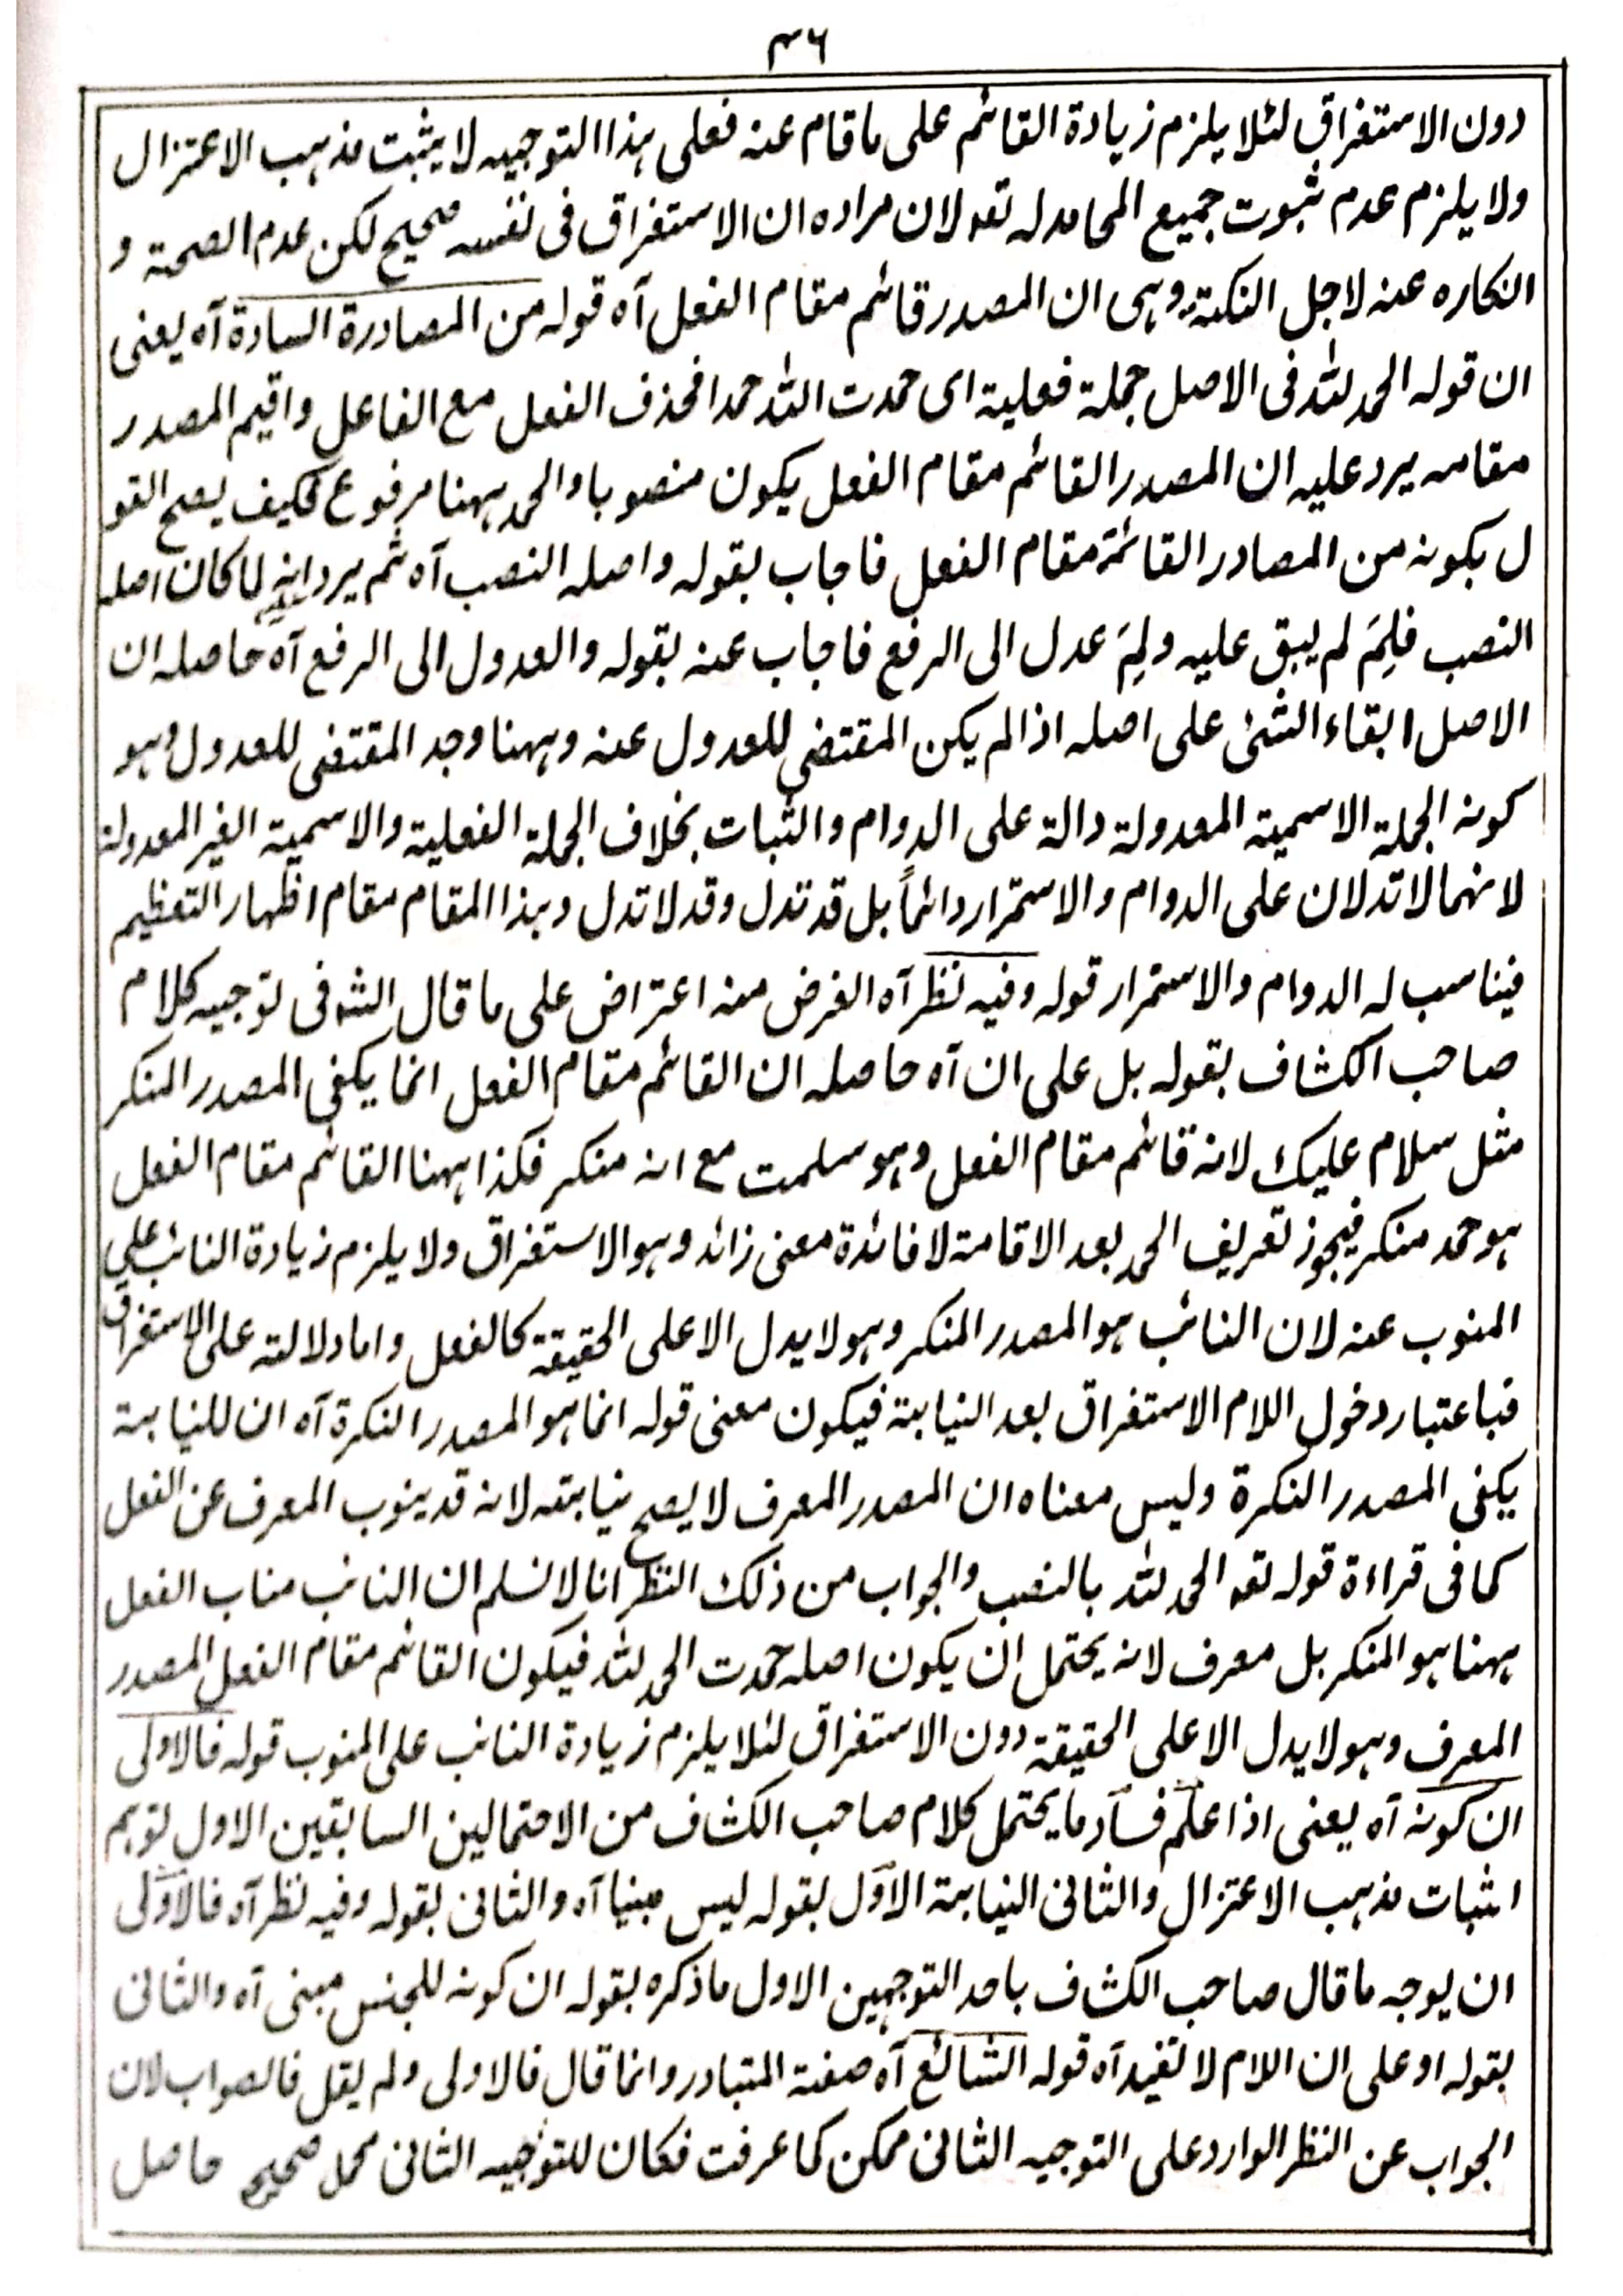 ٣٦
دون الاستغراق لئلا يلزم زيادة القائم على ما قام عنه فعلى هذا التوجيه لا يثبت مذهب الاعتزال
ولا يلزم عدم ثبوت جميع المحامد له تعہ لان مراده ان الاستغراق فى نفسه صحيح لكن عدم الصحة و
انكاره عنه لاجل النكتة وهى ان المصدر قائم مقام الفعل آه قوله من المصادرة السادة آه يعنى
ان قوله الحمد لله فى الاصل جملة فعلية اى حمدت الله حمدا فحذف الفعل مع الفاعل واقيم المصدر
مقامه يرد عليه ان المصدر القائم مقام الفعل يكون منصوبا والحمد ههنا مرفوع فكيف يصح القو
ل بكونه من المصادر القائمة مقام الفعل فاجاب بقوله واصله النصب آه ثم يرد انه لما كان اصله
النصب فلِمَ لم يبق عليه ولِمَ عدل الى الرفع فاجاب عنه بقوله والعدول الى الرفع آه حاصله ان
الاصل ابقاء الشئ على اصله اذا لم يكن المقتضى للعدول عنه وههنا وجد المقتضى للعدول وهو
كونه الجملة الاسمية المعدولة دالة على الدوام والثبات بخلاف الجملة الفعلية والاسمية الغير المعدولة
لانهما لا تدلان على الدوام والاستمرار دائماً بل قد تدل وقد لا تدل وهذا المقام مقام اظهار التعظيم
فيناسب له الدوام والاستمرار قوله وفيه نظر آه الغرض منه اعتراض على ما قال الشہ فى توجيه كلام
صاحب الكشاف بقوله بل على ان آه حاصله ان القائم مقام الفعل انما يكفى المصدر المنكر
مثل سلام عليك لانه قائم مقام الفعل وهو سلمت مع انه منكر فكذا ههنا القائم مقام الفعل
هو حمد منكر فيجوز تعريف الحمد بعد الاقامة لافائدة معنى زائد وهو الاستغراق ولا يلزم زيادة النائب على
المنوب عنه لان النائب هو المصدر المنكر وهو لا يدل الا على الحقيقة كالفعل واما دلالته على الاستغراق
فباعتبار دخول اللام الاستغراق بعد النيابة فيكون معنى قوله انما هو المصدر النكرة آه ان للنيابة
يكفى المصدر النكرة وليس معناه ان المصدر المعرف لا يصح نيابته لانه قد ينوب المعرف عن الفعل
كما فى قراءة قوله تعہ الحمد لله بالنصب والجواب من ذلك النظر انا لا نسلم ان النائب مناب الفعل
ههنا هو المنكر بل معرف لانه يحتمل ان يكون اصله حمدت الحمد لله فيكون القائم مقام الفعل المصدر
المعرف وهو لا يدل الا على الحقيقة دون الاستغراق لئلا يلزم زيادة النائب على المنوب قوله فالاولى
ان كونه آه يعنى اذا علم فساد ما يحتمل كلام صاحب الكشاف من الاحتمالين السابقين الاول توهم
اثبات مذهب الاعتزال والثانى النيابة الاول بقوله ليس مبنيا آه والثانى بقوله وفيه نظر آه فالاولى
ان يوجه ما قال صاحب الكشاف باحد التوجهين الاول ما ذكره بقوله ان كونه للجنس مبنى آه والثانى
بقوله او على ان اللام لا تفيد آه قوله الشائع آه صفة المتبادر وانما قال فالاولى ولم يقل فالصواب لان
الجواب عن النظر الوارد على التوجيه الثانى ممكن كما عرفت فكان للتوجيه الثانى محمل صحيح حاصل